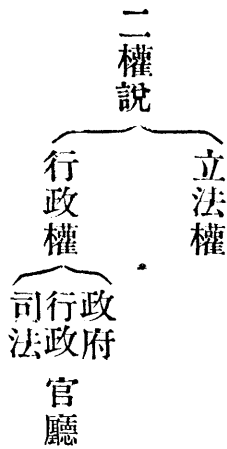 二權說
立法權
行政權
政府
行政官廳
司法